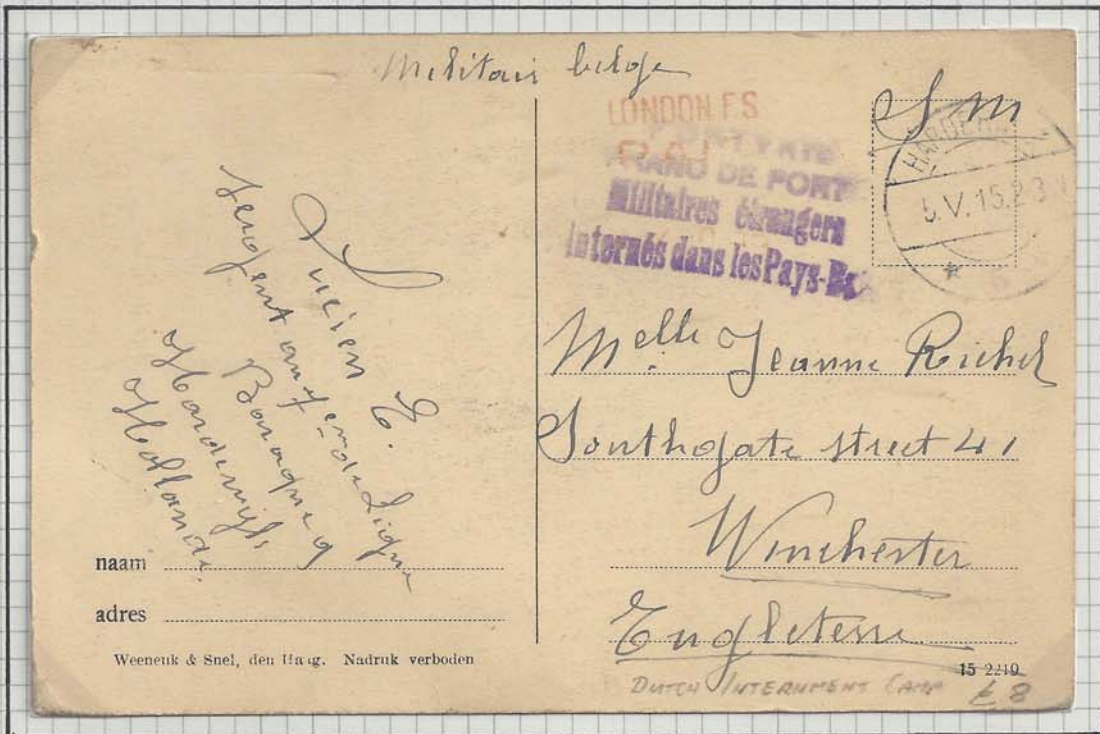 Militair belge
S M
LONDON F.S.
PAID
FRANC DE PORT
Militaires étrangers
Internés dans les Pays-Bas
HARDERW
5.V.15.2-3N
Lucien E.
Sergent au de Ligne
Baraque 9
Harderwijk
Hollande.
Melle Jeanne Richel
Southgate street 41
Winchester
Engleterre
naam
adres
Weenenk & Snel, den Haag. Nadruk verboden
15 2219
DUTCH INTERNMENT CAMP
£8